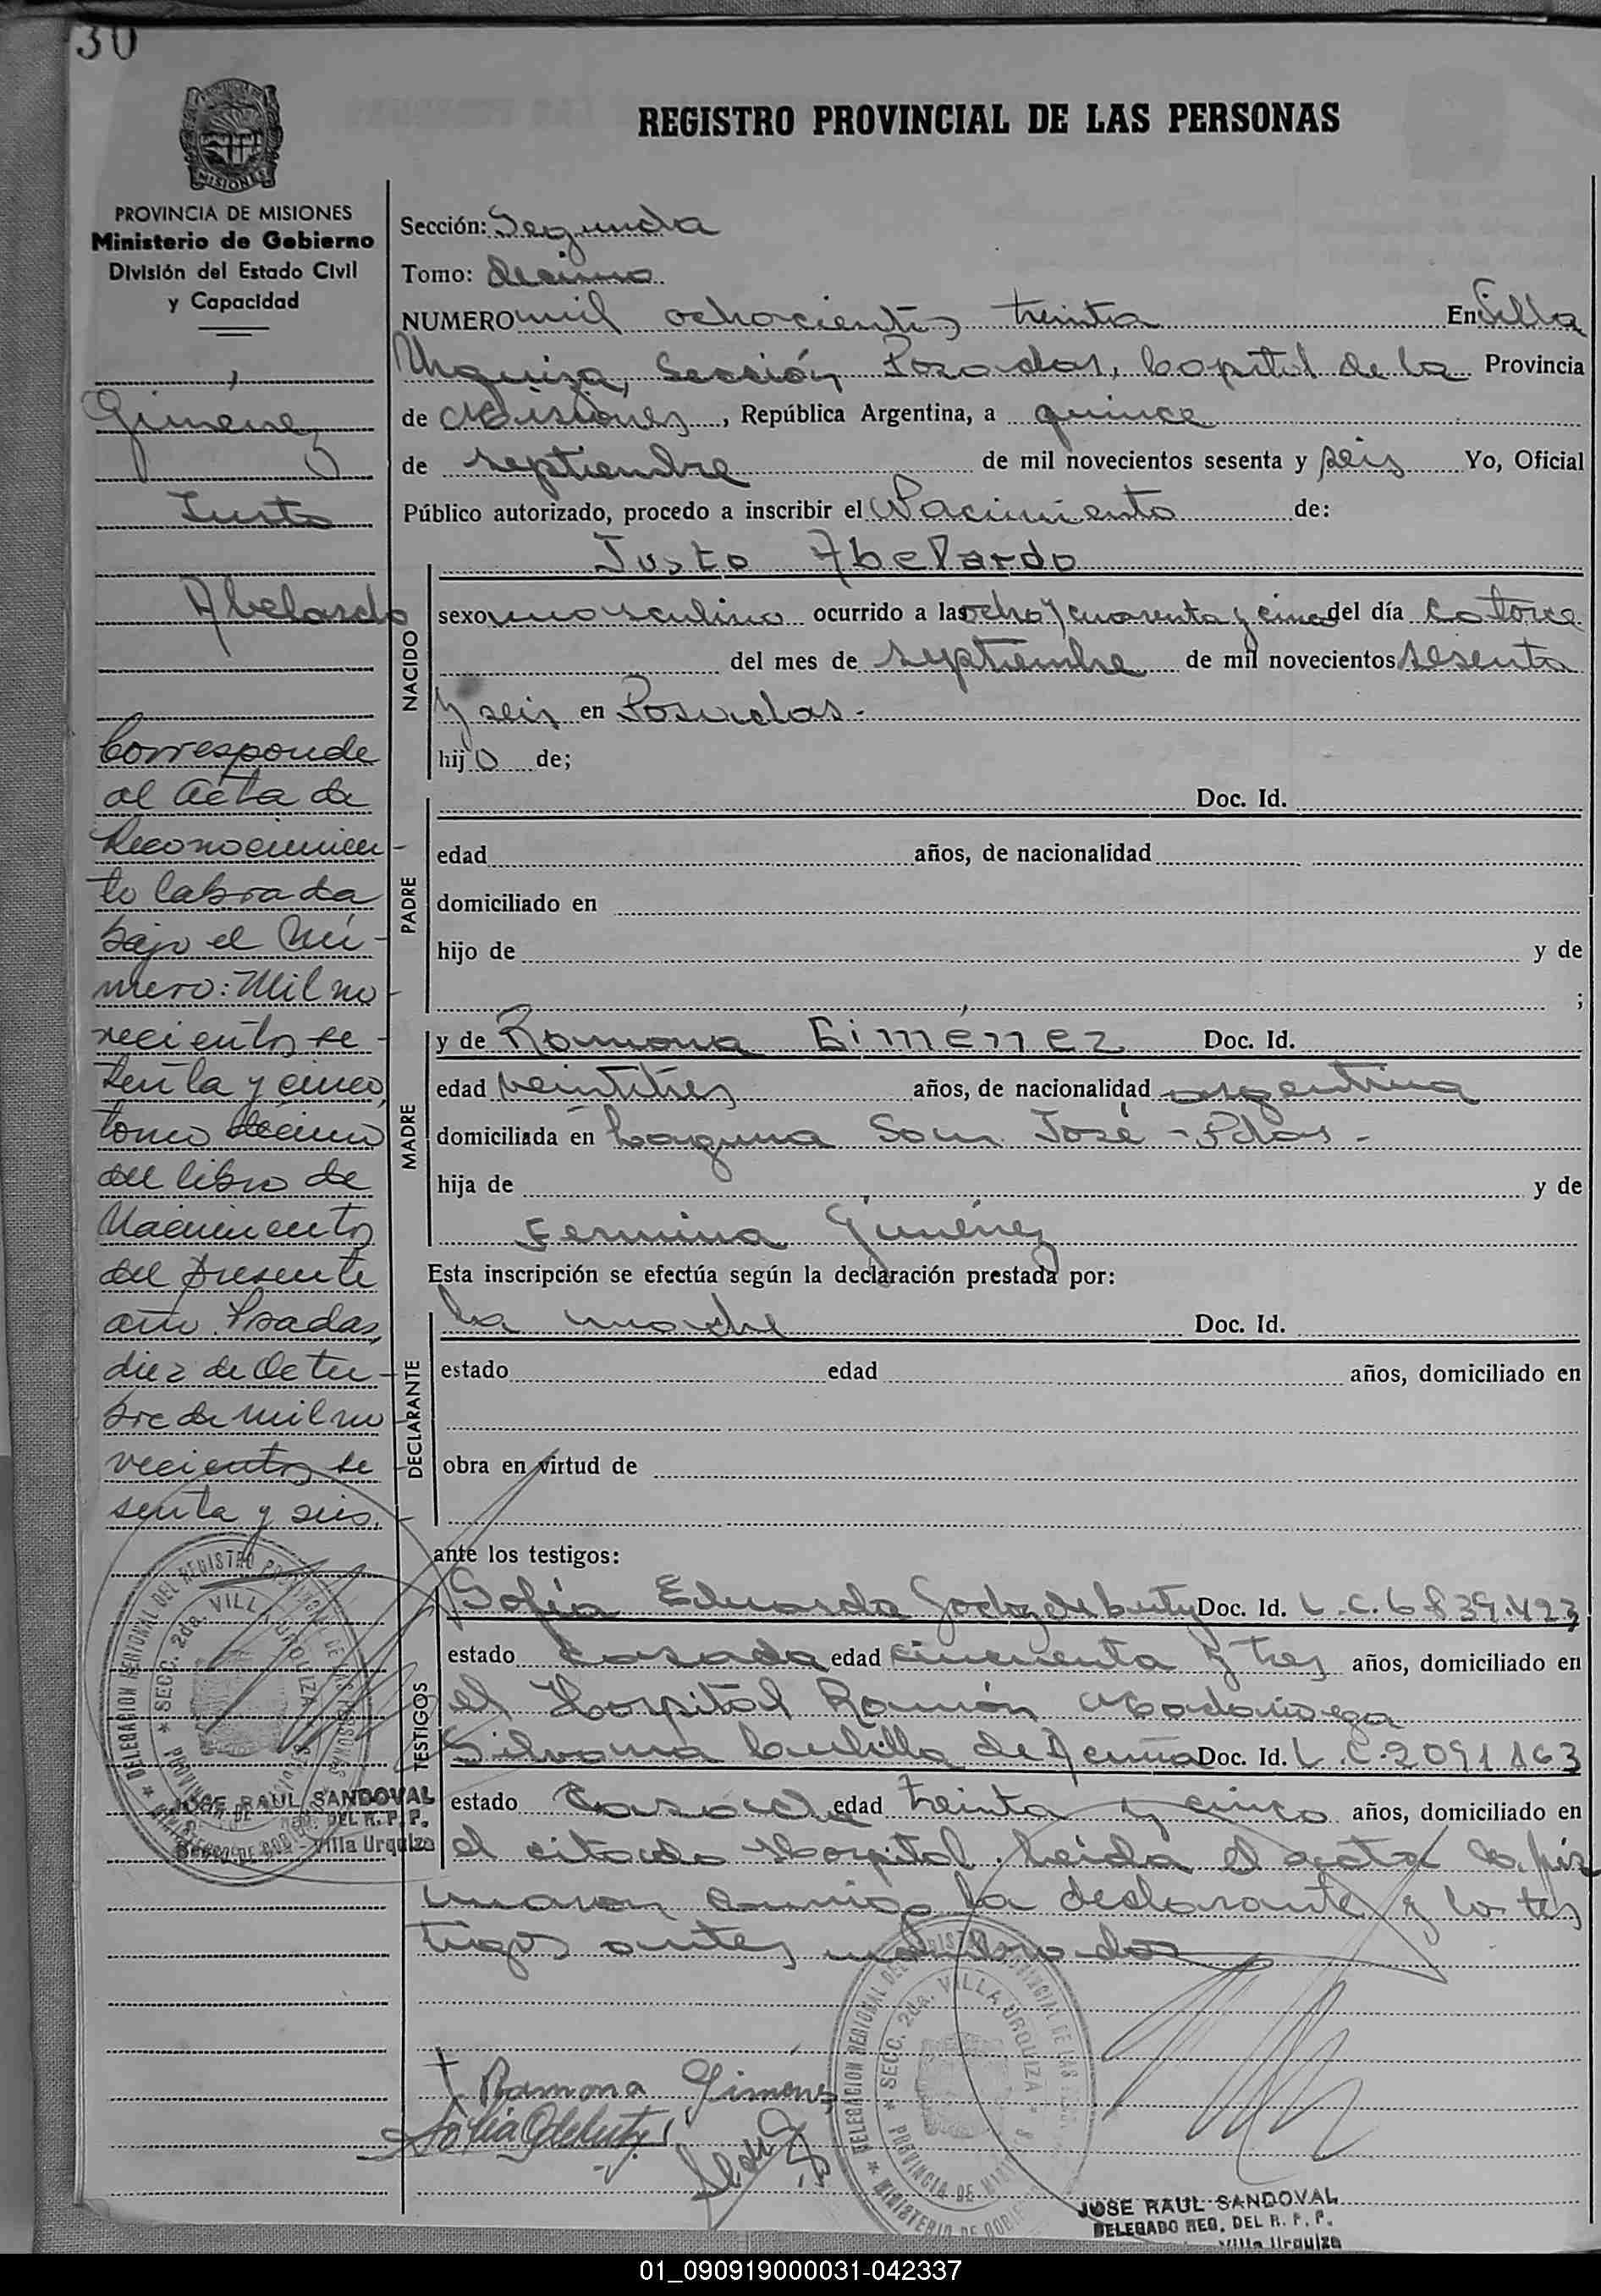 30
REGISTRO PROVINCIAL DE LAS PERSONAS
MISIONES
PROVINCIA DE MISIONES
Ministerio de Gobierno
División del Estado Civil
y Capacidad
Giménez
Justo
Abelardo
Corresponde
al acta de
Reconocimien-
to labrada
bajo el Nú-
mero: Mil no-
vecientos se-
tenta y cinco,
tomo décimo
del libro de
Nacimientos
del presente
año. Posadas,
diez de Octu-
bre de mil no-
vecientos se-
senta y seis.
DELEGACION REGIONAL DEL REGISTRO PROVINCIAL DE LAS PERSONAS
SECC. 2da. VILLA URQUIZA
JOSE RAUL SANDOVAL
DEL R. P. P.
Villa Urquiza
Sección: Segunda
Tomo: décimo
NUMERO mil ochocientos treinta En Villa
Urquiza, Sección Posadas, Capital de la Provincia
de Misiones, República Argentina, a quince
de septiembre de mil novecientos sesenta y seis Yo, Oficial
Público autorizado, procedo a inscribir el Nacimiento de:
Justo Abelardo
NACIDO
sexo masculino ocurrido a las ocho y cuarenta y cinco del día catorce
del mes de septiembre de mil novecientos sesenta
y seis en Posadas.-
hijo de;
PADRE
Doc. Id.
edad años, de nacionalidad
domiciliado en
hijo de y de
;
MADRE
y de Ramona Giménez Doc. Id.
edad veintitres años, de nacionalidad argentina
domiciliada en Laguna San José - Pdas -
hija de y de
Fermina Giménez
Esta inscripción se efectúa según la declaración prestada por:
DECLARANTE
la madre Doc. Id.
estado edad años, domiciliado en
obra en virtud de
ante los testigos:
TESTIGOS
Sofia Eduarda Godoy de Doc. Id. L.C. 6839.423
estado Casada edad cincuenta y tres años, domiciliado en
el Hospital Ramón Madariaga
Silvana de Acuña Doc. Id. L.C. 2091163
estado Casada edad treinta y cinco años, domiciliado en
el citado Hospital. Leída el acta la fir
maron conmigo la declarante y los tes
tigos antes nombrados
Ramona Gimenez
DELEGACION REGIONAL DEL REGISTRO PROVINCIAL DE LAS
SECC. 2da. VILLA URQUIZA
PROVINCIA DE
JOSE RAUL SANDOVAL
DELEGADO REG. DEL R. P. P.
Villa Urquiza
01_090919000031-042337